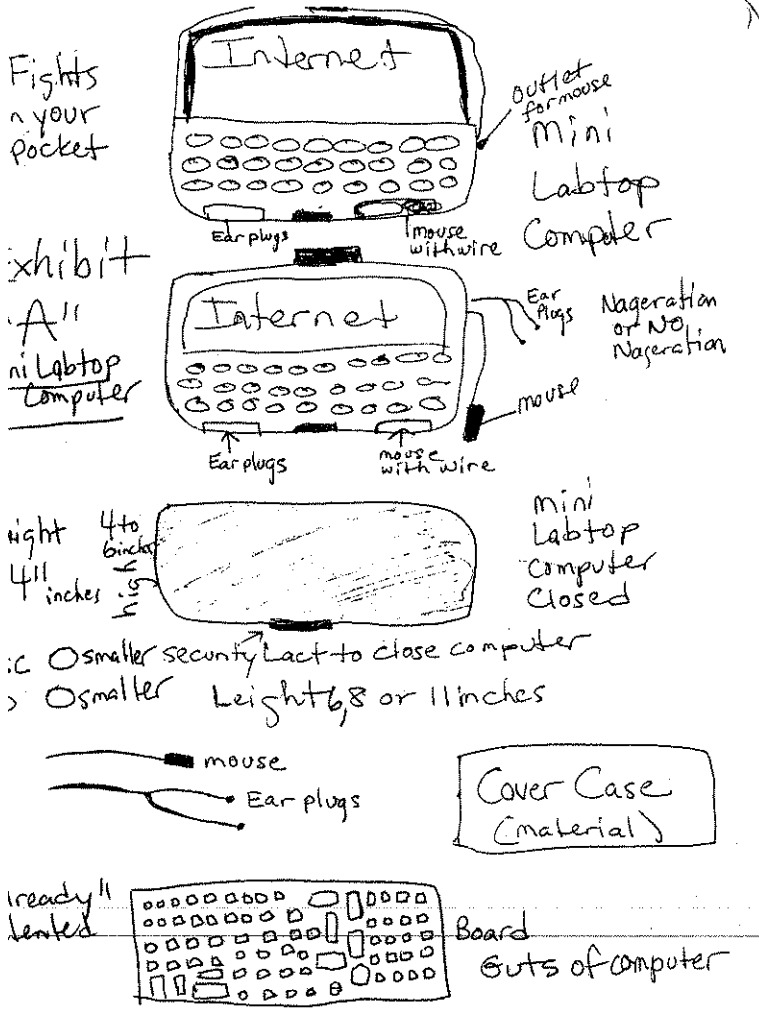 Internet
Fights
n your
Pocket
outlet
for mouse
Mini
Labtop
Computer
Ear plugs
mouse
with wire
xhibit
A"
ni Labtop
Computer
Internet
Ear
Plogs
Nageration
or No
Nageration
mouse
Ear plugs
mouse
with wire
4 to
6 inches
high
4"
inches
mini
Labtop
Computer
Closed
O smaller security Lact to close computer
O smaller Leight 6,8 or 11 inches
mouse
Ear plugs
Cover Case
(material)
lready"
tented
Board
Guts of computer